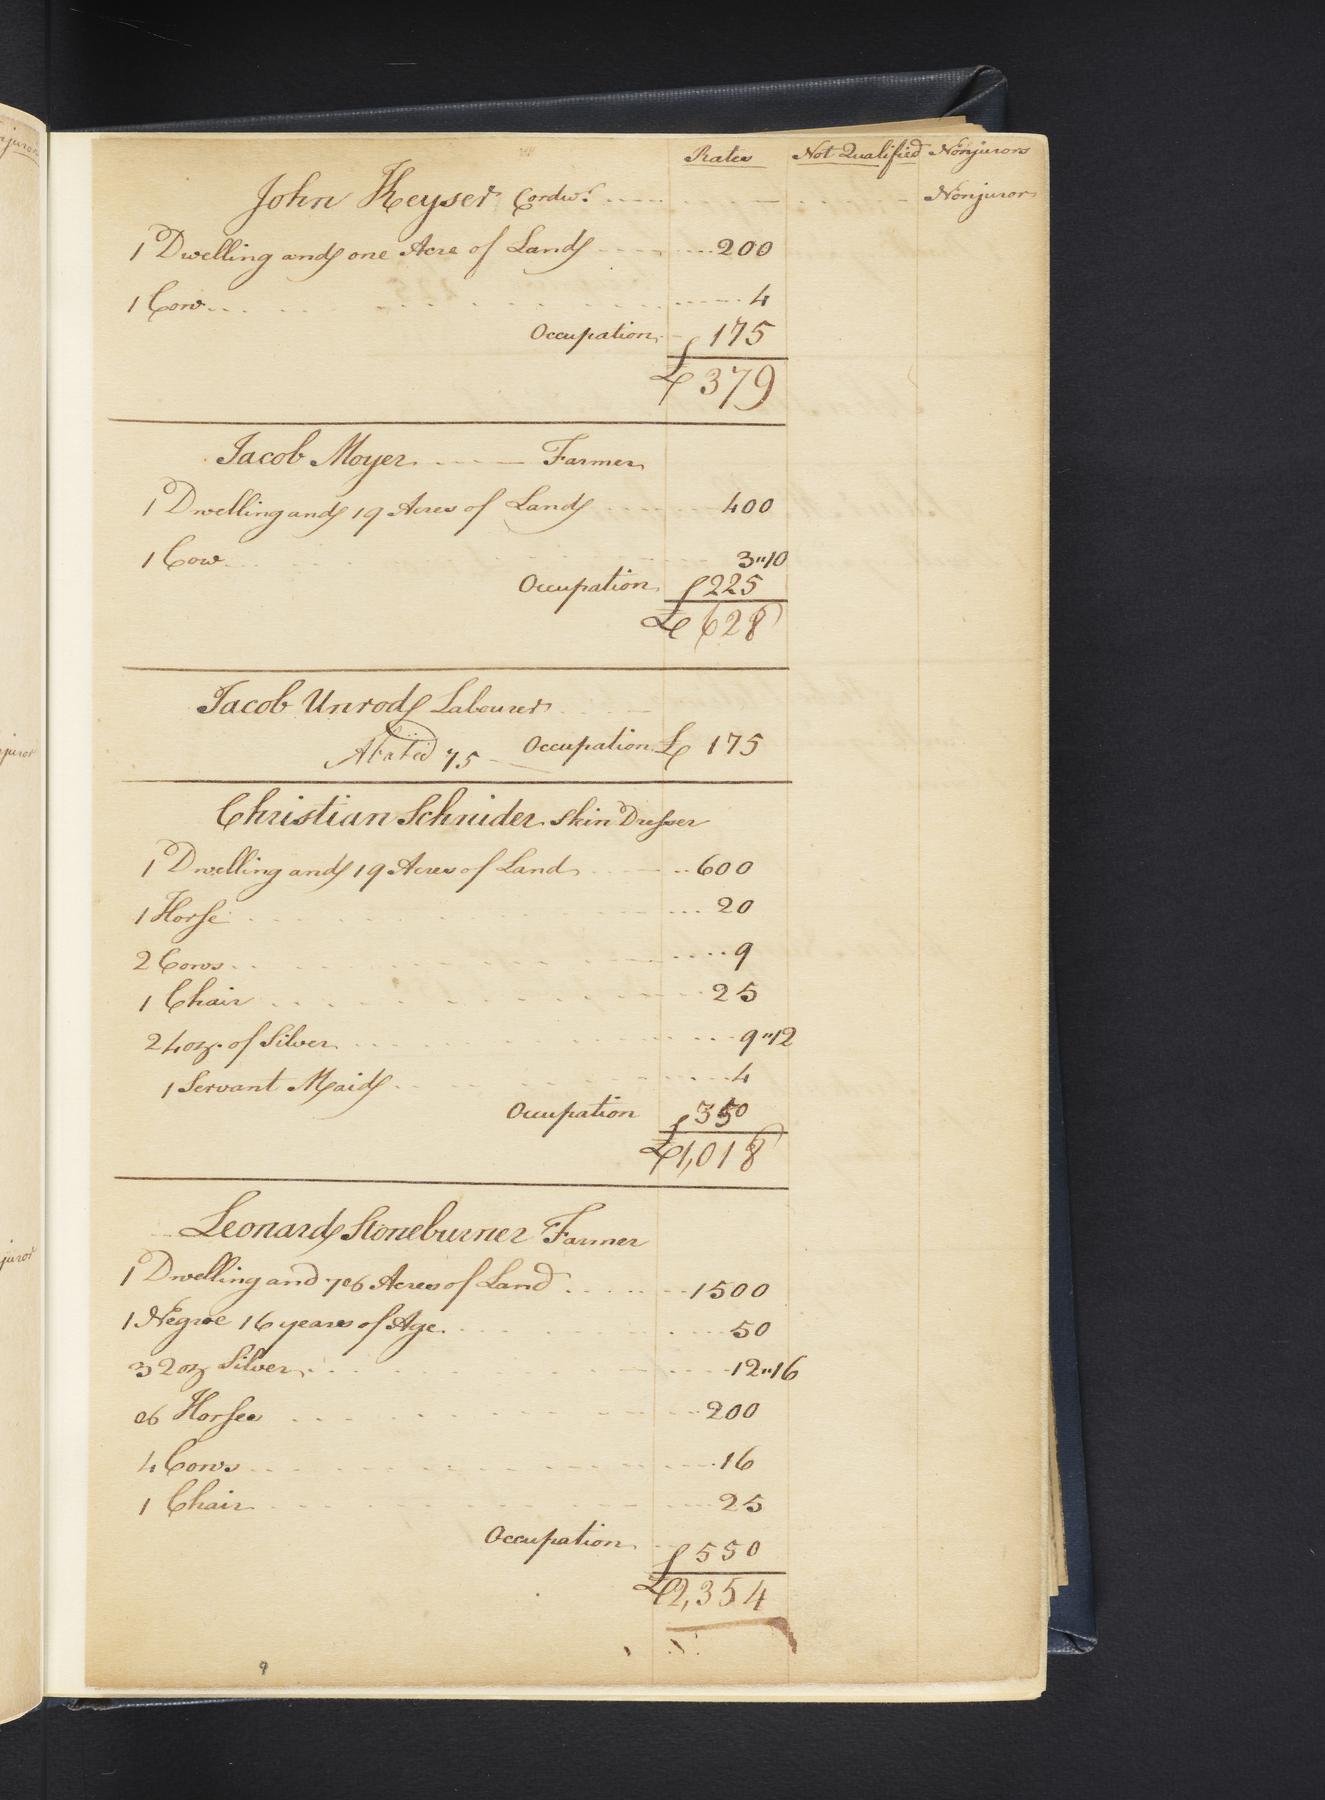 Rates Not Qualified Nonjurors
John Keyser Cordwr. Nonjuror
1 Dwelling and one Acre of Land 200
1 Cow 4
Occupation 175
£ 379
Jacob Moyer Farmer
1 Dwelling and 19 Acres of Land 400
1 Cow 3"10
Occupation 225
£ 628
Jacob Unrod Labourer
Abated 75 Occupation £ 175
Christian Schnider Skin Dresser
1 Dwelling and 19 Acres of Land 600
1 Horse 20
2 Cows 9
1 Chair 25
24 oz. of Silver 9"12
1 Servant Maid 4
Occupation 350
£1,018
Leonard Stoneburner Farmer
1 Dwelling and 76 Acres of Land 1500
1 Negroe 16 years of Age 50
32 oz Silver 12"16
6 Horses 200
4 Cows 16
1 Chair 25
Occupation 550
£2,354
9